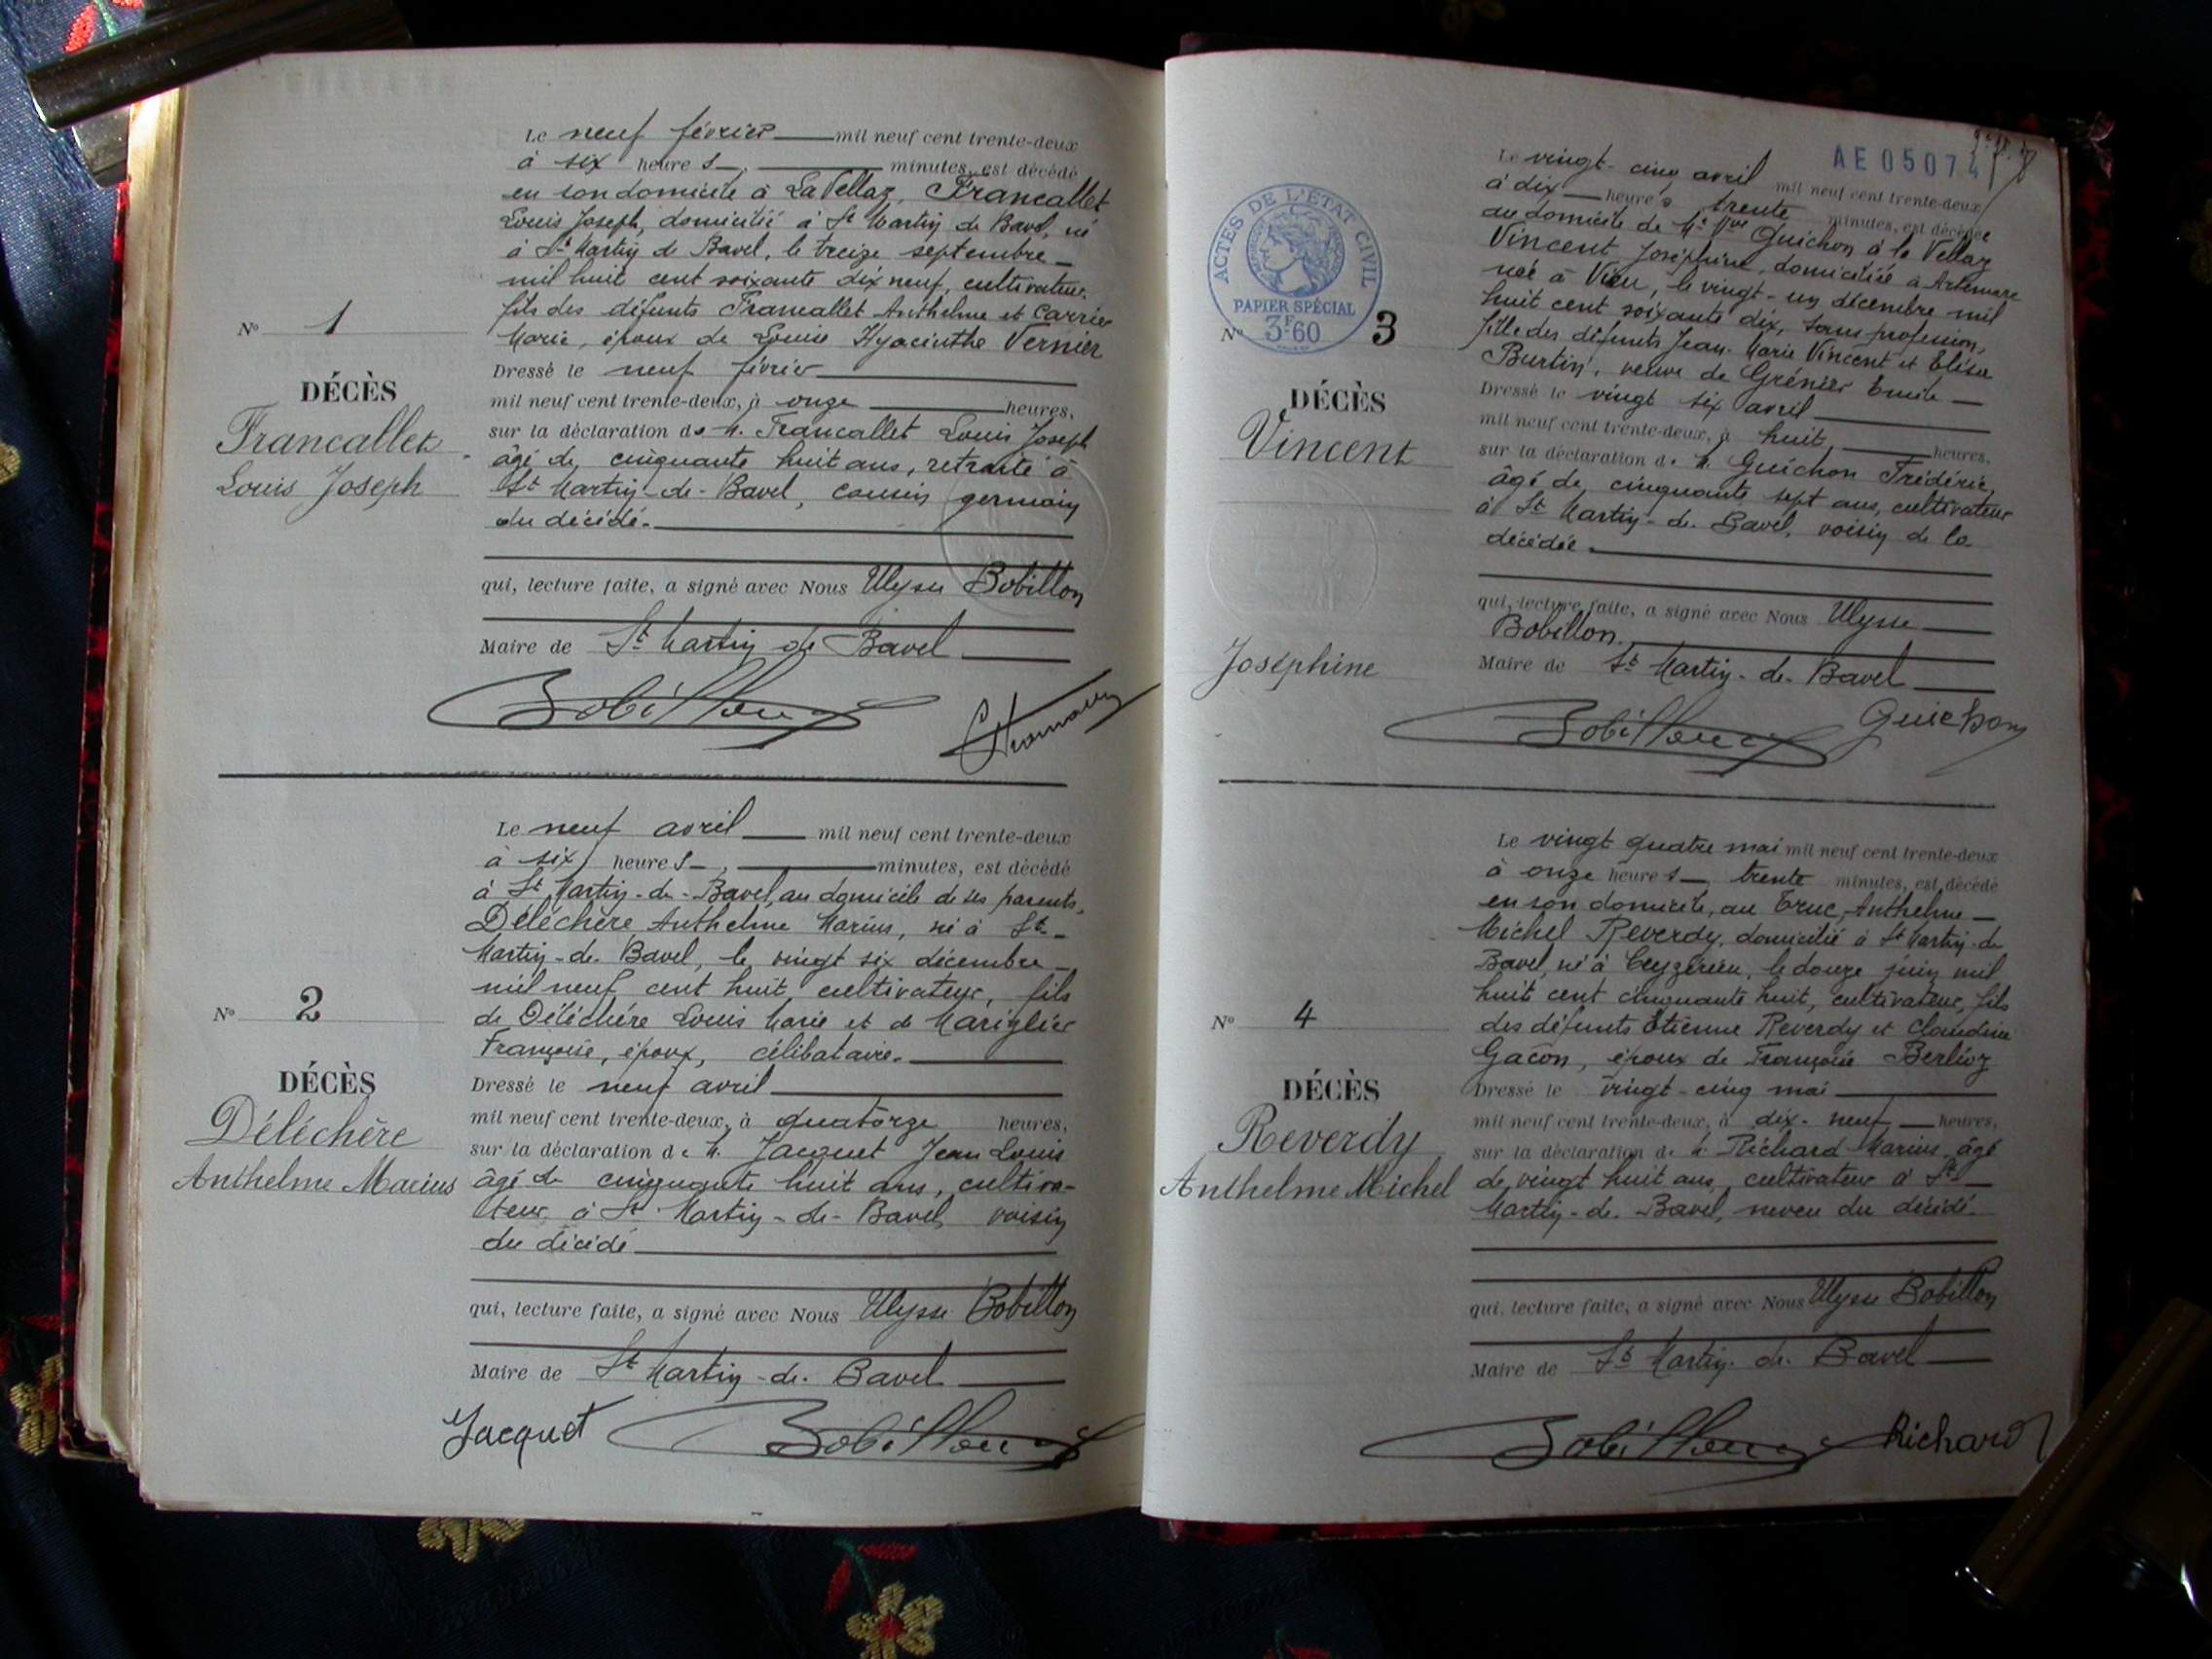 Le neuf février mil neuf cent trente-deux
à six heures, minutes, est décédé
en son domicile à La Vellaz, Francallet
Louis Joseph, domicilié à St Martin de Bavel, né
à St Martin de Bavel, le treize septembre
mil huit cent soixante dix neuf, cultivateur,
fils des défunts Francallet Anthelme et Carrier
Marie, époux de Louise Hyacinthe Vernier
Nº 1
DÉCÈS
Francallet
Louis Joseph
Dressé le neuf février
mil neuf cent trente-deux, à onze heures,
sur la déclaration de M. Francallet Louis Joseph
âgé de cinquante huit ans, retraité à
St Martin-de-Bavel, cousin germain
du décédé.
qui, lecture faite, a signé avec Nous Ulysse Bobillon
Maire de St Martin de Bavel
Bobillon
Nº 2
DÉCÈS
Déléchère
Anthelme Marius
Le neuf avril mil neuf cent trente-deux
à six heures, minutes, est décédé
à St Martin-de-Bavel, au domicile de ses parents,
Déléchère Anthelme Marius, né à St
Martin-de-Bavel, le vingt six décembre
mil neuf cent huit, cultivateur, fils
de Déléchère Louis Marie et de Mariglier
Françoise, époux, célibataire.
Dressé le neuf avril
mil neuf cent trente-deux, à quatorze heures,
sur la déclaration de M. Jacquet Jean Louis
âgé de cinquante huit ans, cultiva-
teur à St Martin-de-Bavel voisin
du décédé
qui, lecture faite, a signé avec Nous Ulysse Bobillon
Maire de St Martin-de-Bavel
Jacquet Bobillon
AE 05074
ACTES DE L'ÉTAT CIVIL
PAPIER SPÉCIAL
3F60
Nº 3
DÉCÈS
Vincent
Joséphine
Le vingt-cinq avril mil neuf cent trente-deux
à dix heures trente minutes, est décédée
au domicile de Mme Vve Guichon à la Vellaz
Vincent Joséphine, domiciliée à Artemare
née à Vieu, le vingt-un décembre mil
huit cent soixante dix, sans profession,
fille des défunts Jean-Marie Vincent et Elisa
Burtin, veuve de Grénier Emile
Dressé le vingt six avril
mil neuf cent trente-deux, à huit heures,
sur la déclaration de M. Guichon Frédéric,
âgé de cinquante sept ans, cultivateur
à St Martin-de-Bavel, voisin de la
décédée.
qui, lecture faite, a signé avec Nous Ulysse
Bobillon
Maire de St Martin-de-Bavel
Bobillon Guichon
Nº 4
DÉCÈS
Reverdy
Anthelme Michel
Le vingt quatre mai mil neuf cent trente-deux
à onze heures trente minutes, est décédé
en son domicile, au Truc, Anthelme
Michel Reverdy, domicilié à St Martin-de
Bavel, né à Ceyzérieu, le douze juin mil
huit cent cinquante huit, cultivateur, fils
des défunts Etienne Reverdy et Claudine
Gacon, époux de Françoise Berlioz
Dressé le vingt-cinq mai
mil neuf cent trente-deux, à dix-neuf heures,
sur la déclaration de M. Richard Marius, âgé
de vingt huit ans, cultivateur à St
Martin-de-Bavel, neveu du décédé.
qui, lecture faite, a signé avec Nous Ulysse Bobillon
Maire de St Martin-de-Bavel
Bobillon Richard